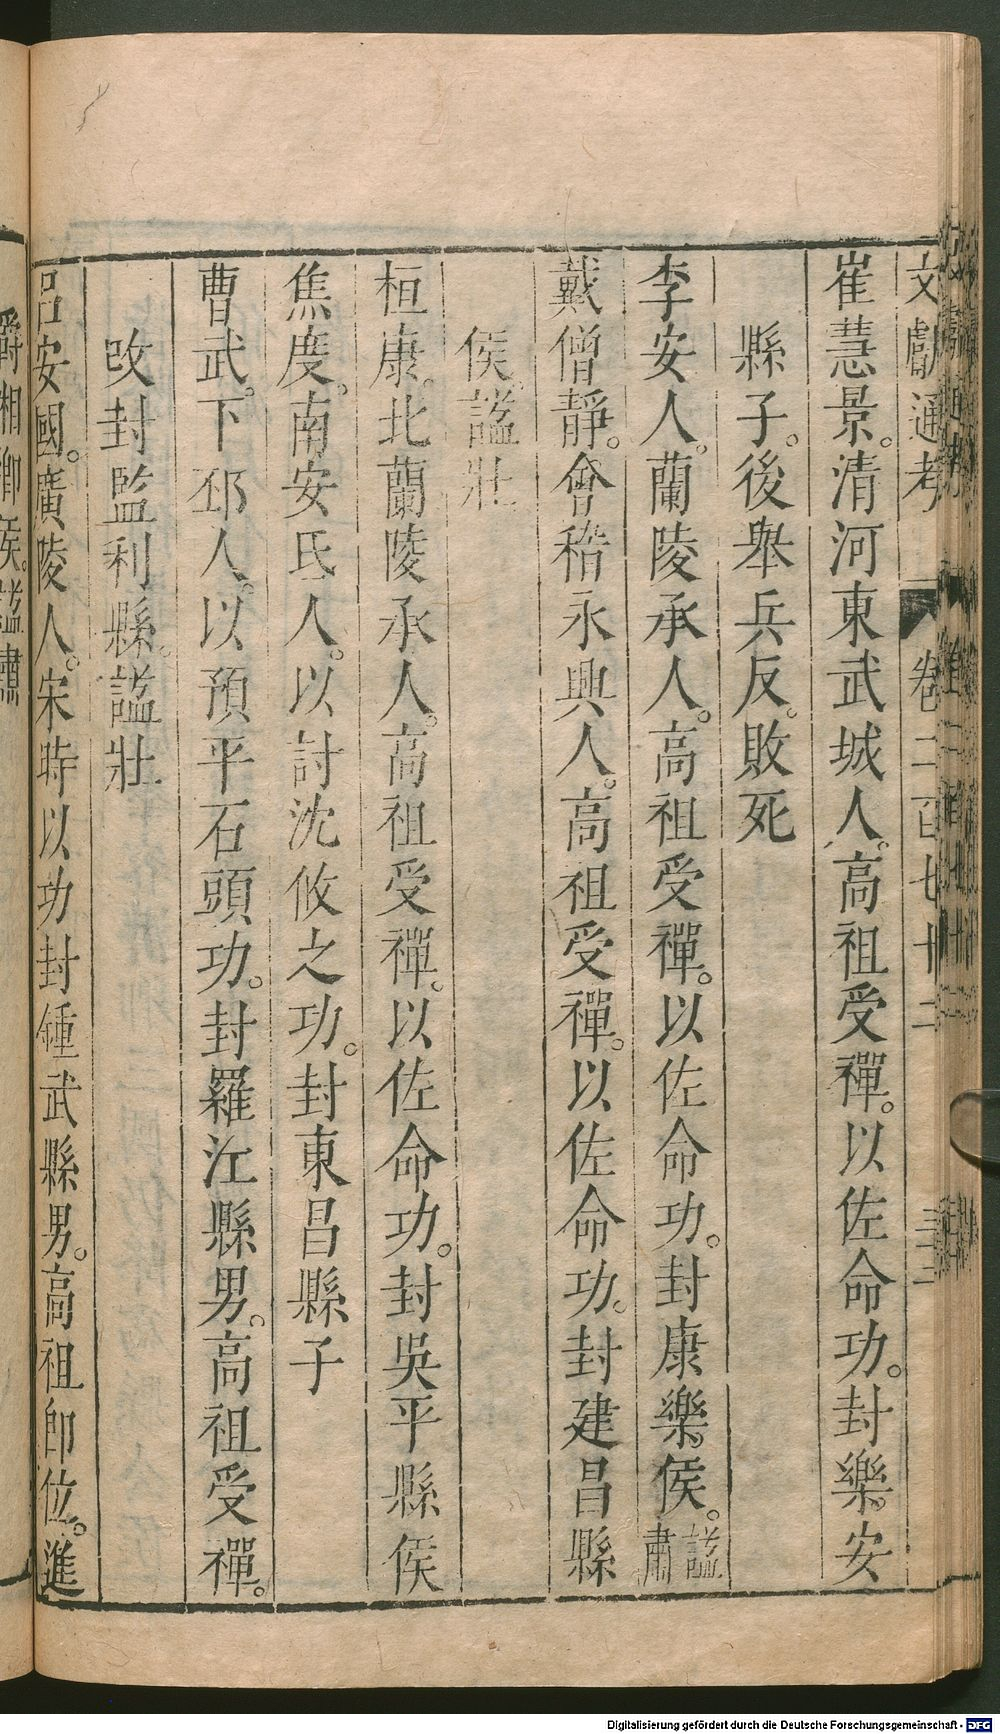 文獻通考 卷二百七十二 三二
崔慧景。清河東武城人。高祖受禪。以佐命功。封樂安
縣子。後舉兵反。敗死
李安人。蘭陵承人。高祖受禪。以佐命功。封康樂侯。謚肅
戴僧靜。會稽永興人。高祖受禪。以佐命功。封建昌縣
侯。謚壯
桓康。北蘭陵承人。高祖受禪。以佐命功。封吳平縣侯
焦度。南安氐人。以討沈攸之功。封東昌縣子
曹武。下邳人。以預平石頭功。封羅江縣男。高祖受禪。
改封監利縣。謚壯
呂安國。廣陵人。宋時以功封鍾武縣男。高祖卽位。進
爵湘鄉侯。謚肅
Digitalisierung gefördert durch die Deutsche Forschungsgemeinschaft - DFG